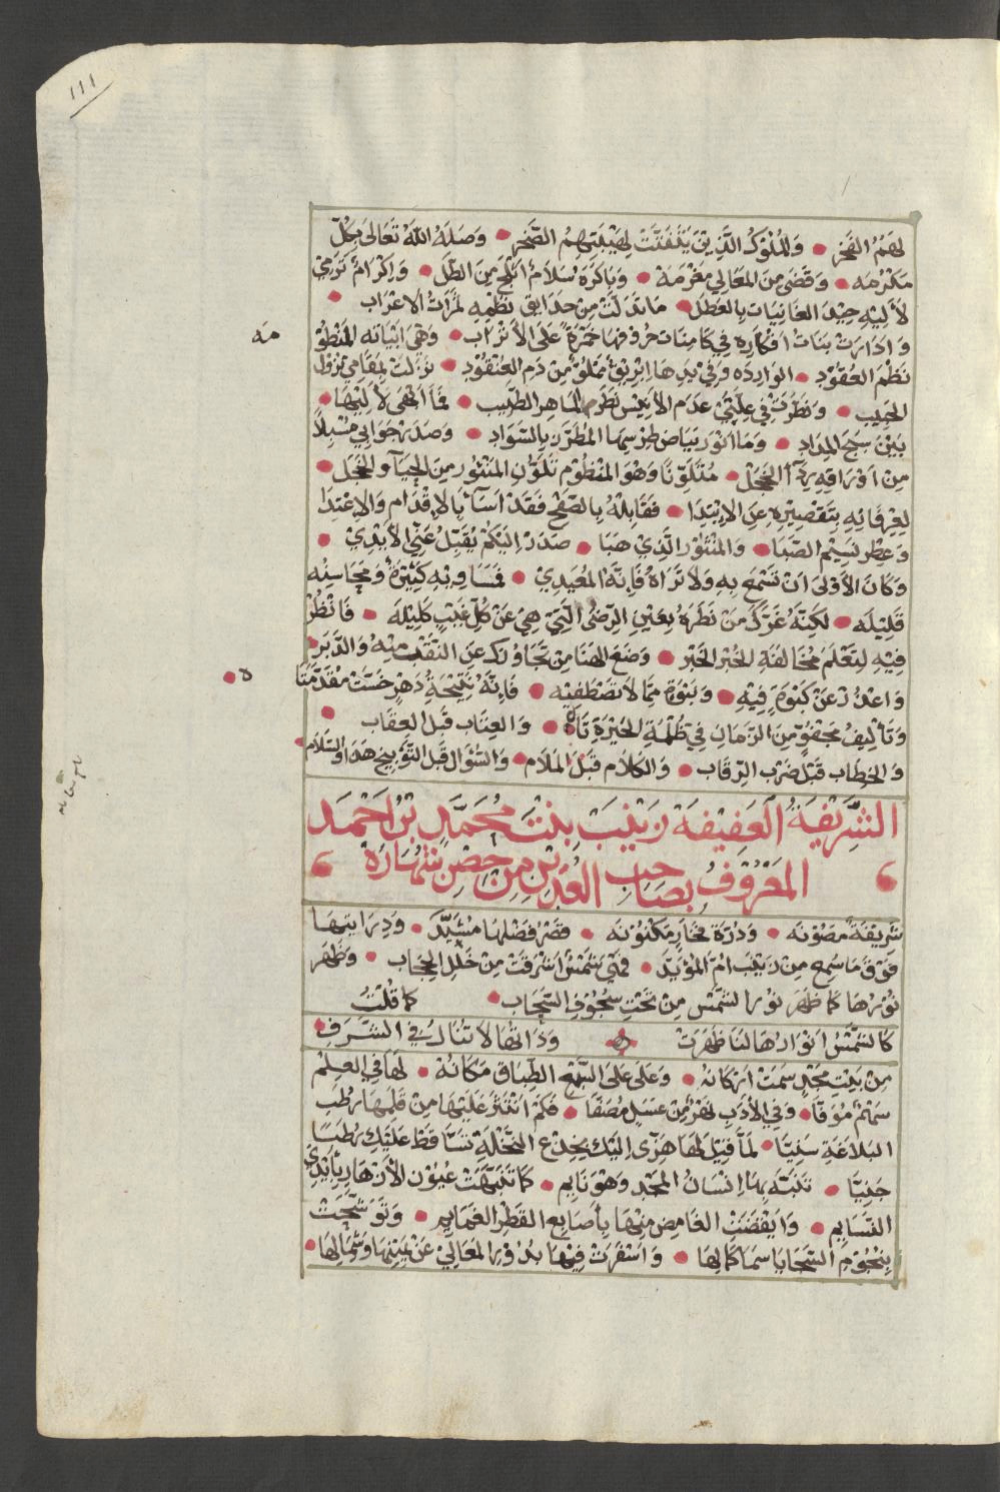 ١١١
لهم الفخر • والملوك الذين يتفتت لهيبتهم الصخر • وصله الله تعالى بكل
مكرمه • وقضى من المعالي مغرمة • وباكره سلام ابلج من الطل • واكرام ترمي
لآليه جيد الغانيات بالعطل • ما تدلت من حدايق نظمه ثمرات الاعراب •
وادارت بنات افكاره في كاسات حروفها خمرة على الأتراب • وهي ابياته المنطق
مه
نظم العقود • الوارده وفي يدها ابريق مملو من دم العنقود • نزلت بمقامي نزول
الحبيب • ونظرت في علتي عدم الأنيس نظر الماهر الطبيب • فما ابهى لآليها •
بين سبح المداد • وما انور بياض طرسها المطرز بالسواد • وصدر جوابي مسبلا
من اوراقه ردآ الخجل • متلونا وهو المنظوم تلون المنثور من الحيآ والخجل •
لعرفانه بتقصيره عن الابتدا • فقابله بالصفح فقد اسآ بالاقدام والاعتدا
وعطر نسيم الصبا • والمنثور الذي هبا • صدر اليكم يقبل عني الأيدي •
وكان الأولى ان تسمع به ولا تراه فإنه المعيدي • فمساويه كثيرة ومحاسنه
قليله • لكنه غرك من نظره بعين الرضى التي هي عن كل عيب كليله • فانظر
فيه لتعلم مخالفة الخبر الخبر • وضع الهنا من تجاوزك عن النقب منه والدبر
واعذر عن كبوة فيه • ونبوة مما لا تصطفيه • فإنه نتيجة دهر خست مقدمتا
ه •
وتأليف مجفو من الزمان في ظلمة الحيرة تاه • والعتاب قبل العقاب •
والخطاب قبل ضرب الرقاب • والكلام قبل الملام • والسؤال قبل التوبيخ هذا والسلام
الشريفة العفيفة زينب بنت محمد بن احمد
المعروف بصاحب العدين من حصن شهارة
شريفة مصونه • ودرة فخار مكنونه • قصر فضلها مشيد • ودرايتها
فوق ما سمع من زينب ام المؤيد • فهي شمس اشرقت من خلل الحجاب • وظهر
نورها كما ظهر نور الشمس من تحت سجوف السحاب • كما قلت
كالشمس انوارها لنا ظهرت وذاتها لا تنال في الشرف
من بيت مجد سمت اركانه • وعلى على السبع الطباق مكانه • لها في العلم
سهم موقا • وفي الأدب نهر من عسل مصفا • فلم انتثر عليها من قلمها رطب
البلاغة سنيا • لمآ قيل لها هزى اليك بجذع النخلة تساقط عليك رطبا
جنيا • تنبه بها انسان المجد وهو نايم • كما تنبهت عيون الأزهار بأيدي
النسايم • وايقضت الغامض منها بأصابع القطر الغمايم • وتوشحت
بنجوم السجايا سما كمالها • واسفرت فيها بدور المعالي عن يمينها وشمالها •